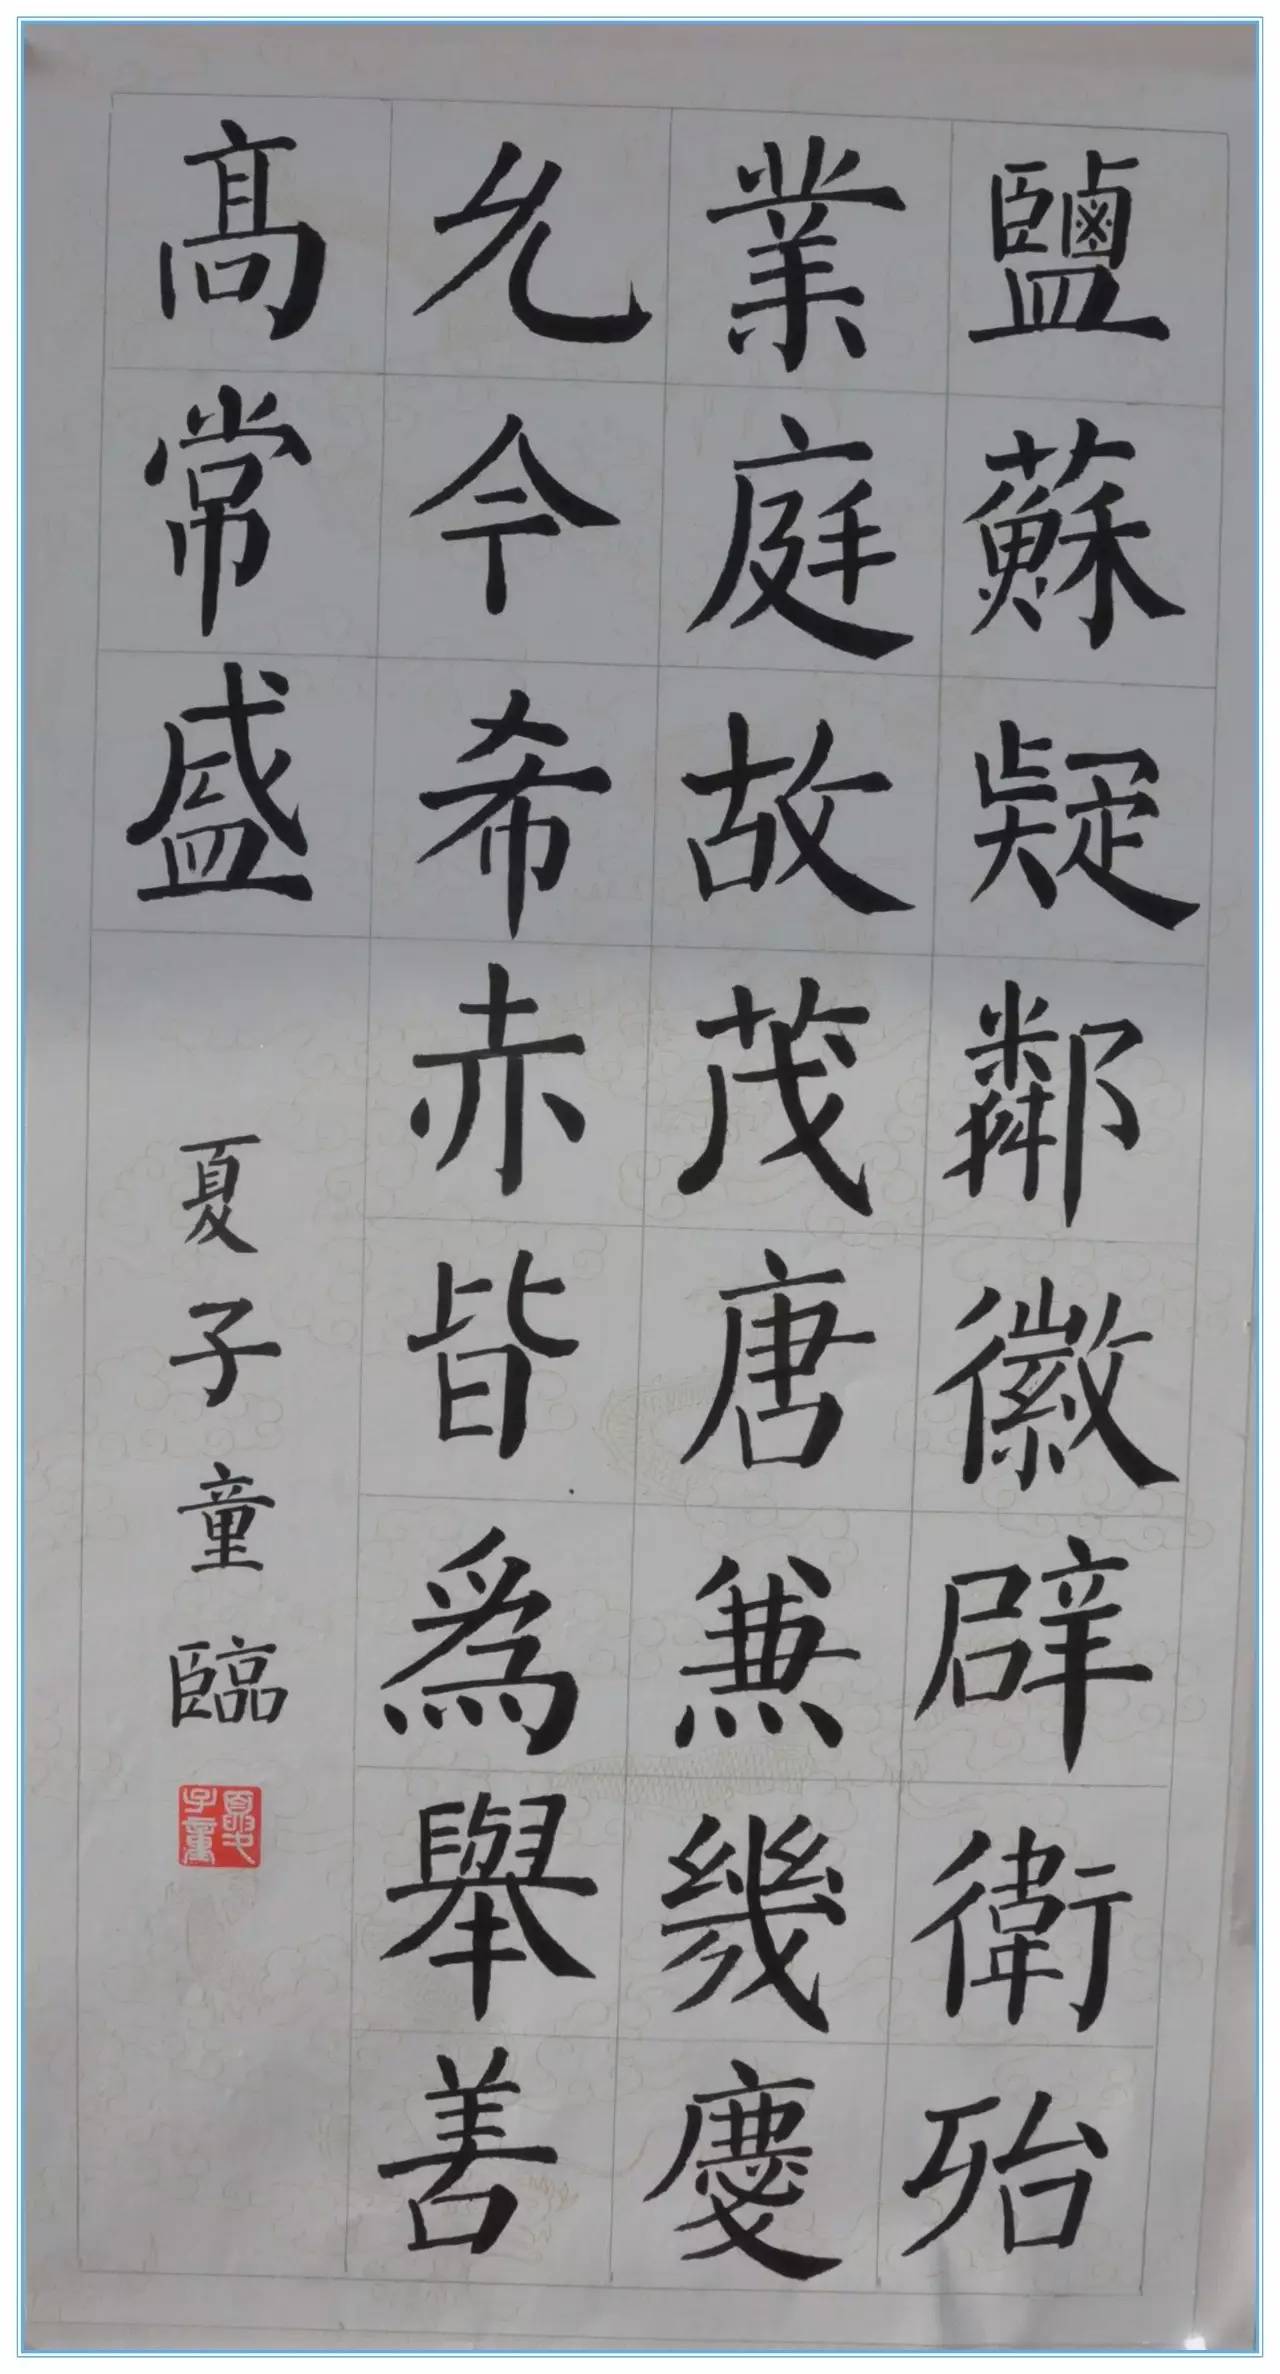 鹽蘇疑鄰徽辟衛殆
業庭故茂唐兼幾慶
允今希赤皆為舉善
高常盛
夏子童臨
夏子童